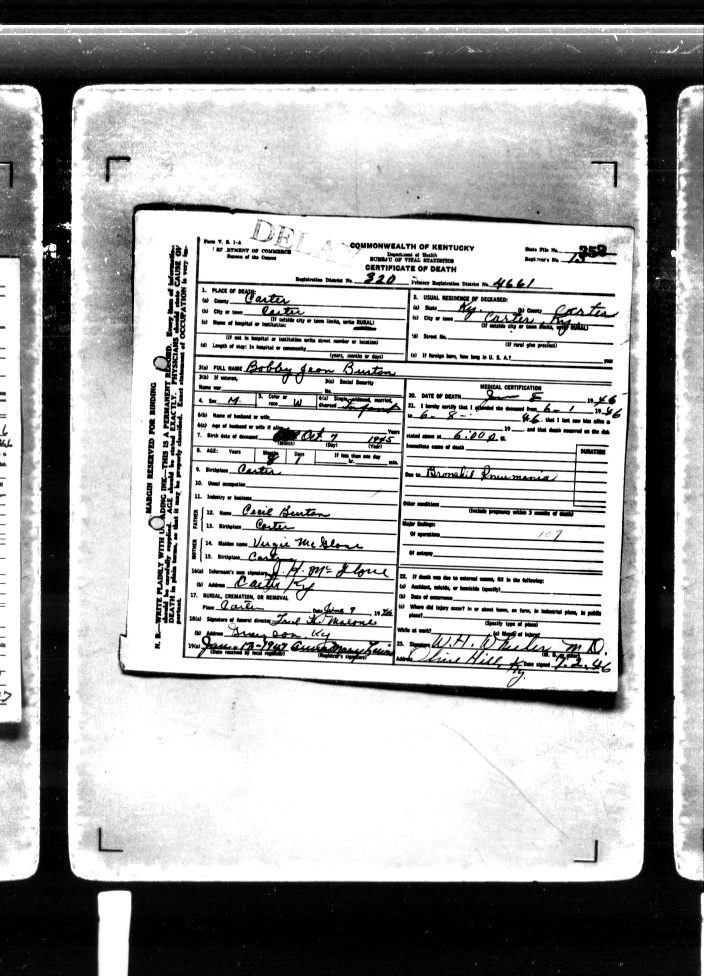 DELAY
Form V. S. 1-A
DEPARTMENT OF COMMERCE
Bureau of the Census
COMMONWEALTH OF KENTUCKY
Department of Health
BUREAU OF VITAL STATISTICS
CERTIFICATE OF DEATH
State File No. 352
Registrar's No. 13
Registration District No. 320 Primary Registration District No. 4661
MARGIN RESERVED FOR BINDING
1. PLACE OF DEATH:
(a) County Carter
(b) City or town Carter
(If outside city or town limits, write RURAL)
(c) Name of hospital or institution:
(If not in hospital or institution write street number or location)
(d) Length of stay: In hospital or community
(years, months or days)
2. USUAL RESIDENCE OF DECEASED:
(a) State Ky (b) County Carter
(c) City or town Carter Ky
(If outside city or town limits, write RURAL)
(d) Street No.
(If rural give precinct)
(e) If foreign born, how long in U. S. A.? year
3(a) FULL NAME Bobby Jean Burton
3(b) If veteran,
Name war
3(c) Social Security
No.
4. Sex M. 5. Color or
race W 6(a) Single, widowed, married,
divorced Infant
6(b) Name of husband or wife
6(c) Age of husband or wife if alive Years
7. Birth date of deceased Oct. 7 1945
(Month) (Day) (Year)
8. AGE: Years Months Days If less than one day
8 1 hr. min.
9. Birthplace Carter
10. Usual occupation
11. Industry or business
FATHER
12. Name Cecil Burton
13. Birthplace Carter
MOTHER
14. Maiden name Virgie McGlone
15. Birthplace Carter
16(a) Informant's own signature J. H. McGlone
(b) Address Carter Ky
17. BURIAL, CREMATION, OR REMOVAL
Place Carter Date June 9 1946
18(a) Signature of funeral director Fred K. Malone
(b) Address Grayson, Ky
19(a) Jan-17-1947 Anna Mary
(Date received by local registrar) (Registrar's signature)
MEDICAL CERTIFICATION
20. DATE OF DEATH 8 1946
21. I hereby certify that I attended the deceased from 6-1 1946
to 6-8- 46, that I last saw him alive on
19 and that death occurred on the date
stated above at 6:00 P. M.
Immediate cause of death
DURATION
Due to Bronchil Pneumonia
Other conditions
(Include pregnancy within 3 months of death)
Major findings:
Of operations 107
Of autopsy
22. If death was due to external causes, fill in the following:
(a) Accident, suicide, or homicide (specify)
(b) Date of occurrence
(c) Where did injury occur? in or about home, on farm, in industrial place, in public
place?
(Specify type of place)
While at work? (e) Means of injury
23. Signature W. H. Wheeler M. D.
Address Olive Hill, Ky. Date signed 7-2-46
N. B.—WRITE PLAINLY WITH UNFADING INK—THIS IS A PERMANENT RECORD. Every item of information
should be carefully supplied. AGE should be stated EXACTLY. PHYSICIANS should state CAUSE OF
DEATH in plain terms, so that it may be properly classified. Exact statement of OCCUPATION is very im-
portant.